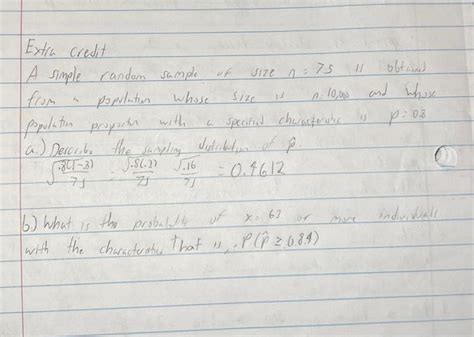 Extra credit
A simple random sample of size n = 75 is obtained
from a population whose size is n = 10,000 and whose
population proportion with a specified characteristic is p = 0.8
a.) Describe the sampling distribution of p̂
√.8(1-.8)/75 = √.8(.2)/75 √.16/75 = 0.4612
b.) What is the probability of x = 63 or more individuals
with the characteristic That is, P(p̂ ≥ 0.84)